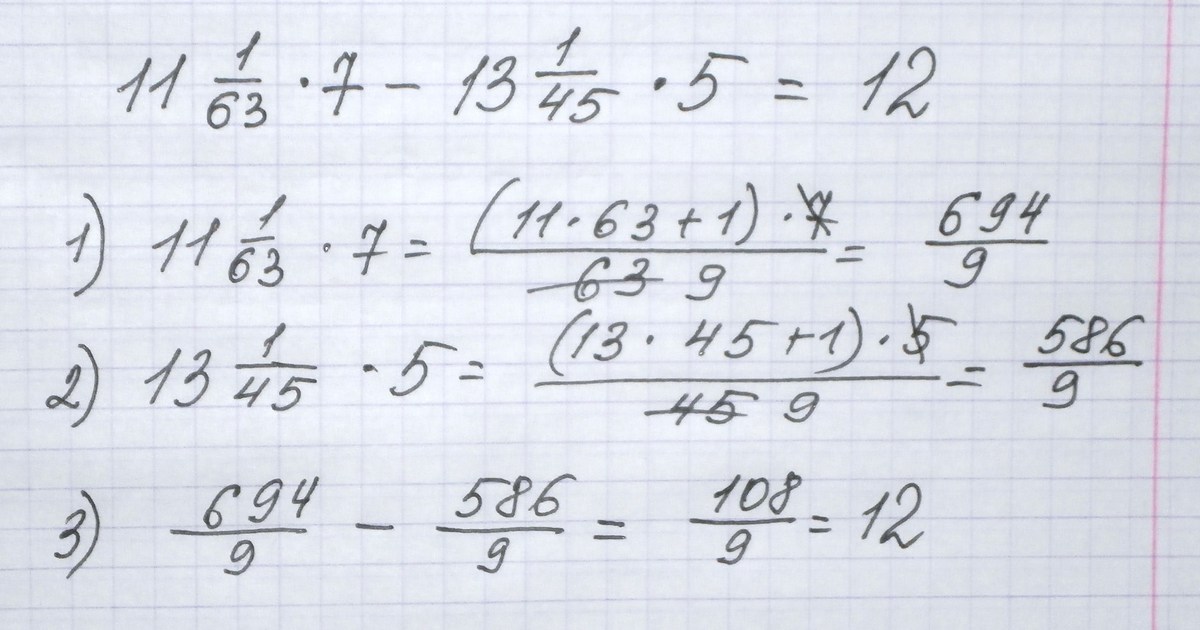 11 1/63 · 7 - 13 1/45 · 5 = 12
1) 11 1/63 · 7 = (11·63+1)·7/63 9 = 694/9
2) 13 1/45 · 5 = (13·45+1)·5/45 9 = 586/9
3) 694/9 - 586/9 = 108/9 = 12